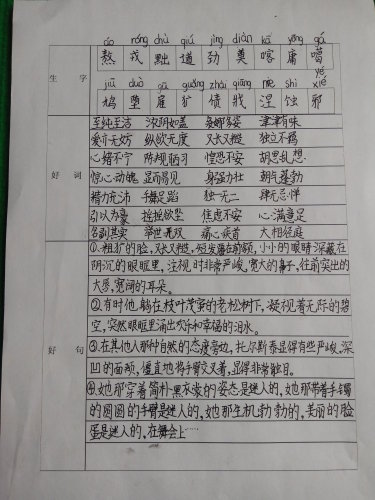 áo róng chù qiú jìng diàn kā yōng gá
熬 戎 黜 遒 劲 奠 喀 庸 噶
生 字
jiū duò gù guǎng zhài qiāng niè shí yé, xié
鸠 堕 雇 犷 债 戕 涅 蚀 邪
至纯至洁 浓阴如盖 婀娜多姿 津津有味
爱亦无妨 纵欲无度 又长又糙 独立不羁
心绪不宁 陈规陋习 惶恐不安 胡思乱想
好 词
惊心动魄 显而易见 身强力壮 朝气蓬勃
精力充沛 手舞足蹈 独一无二 肆无忌惮
引以为豪 摇摇欲坠 焦虑不安 心满意足
名副其实 举世无双 痛心疾首 大相径庭
①粗犷的脸,又长又糙,短发覆在前额,小小的眼睛深藏在
阴沉的眼眶里,注视时非常严峻。宽大的鼻子,往前突出的
大唇,宽阔的耳朵。
②有时他躺在枝叶茂密的老松树下,凝视着无际的碧
空,突然眼眶里涌出欢乐和幸福的泪水。
好 句
③在其他人那种自然的态度旁边,托尔斯泰显得有些严峻。深
凹的面颊,僵直地将手臂交叉着,显得非常触目。
④她那穿着简朴黑衣裳的姿态是迷人的,她那带着手镯
的圆圆的手臂是迷人的,她那生机勃勃的,美丽的脸
蛋是迷人的。在舞会上……